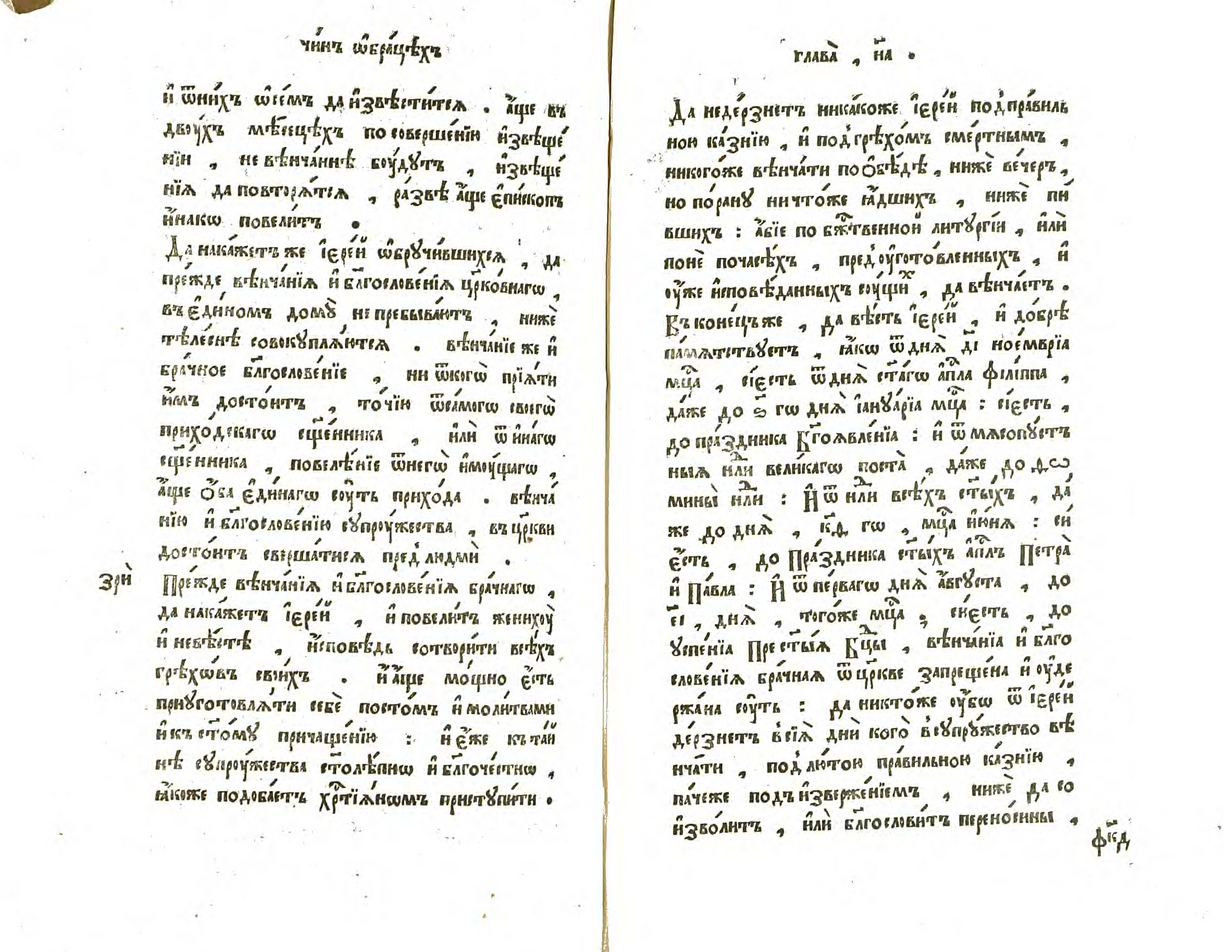 чи́нъ ѡ҆бра́цѣхъ
и҆ ѿни́хъ ѡ҆се́мъ да и҆звѣсти́тсѧ . а҆́ще въ
двои́хъ мⷭ҇цехъ по соверше́нїю и҆звѣще́
нїи , не вѣнча́ннѣ бꙋ́дꙋтъ , и҆звѣще́
нїѧ да повторѧ́тсѧ , ра́звѣ а҆́ще є҆пи́скопъ
и҆на́кѡ повели́тъ .
Да нака́жетъ же і҆ере́й ѡ҆брꙋчи́вшихсѧ , да
пре́жде вѣнча́нїѧ и҆ блгⷭ҇ове́нїѧ цр҃ко́внагѡ ,
въ є҆ди́номъ домꙋ̀ не пребыва́ютъ , нижѐ
тѣле́снѣ совокꙋплѧ́ютсѧ . вѣнча́нїе же и҆
бра́чное блгⷭ҇ове́нїе , ни ѿкогѡ̀ прїѧ́ти
и҆̀мъ досто́итъ , то́чїю ѿсамо́гѡ своегѡ̀
прихо́дскагѡ сщ҃е́нника , и҆лѝ ѿ и҆на́гѡ
сщ҃е́нника , повелѣ́нїе ѿнегѡ̀ и҆мꙋ́щагѡ ,
а҆́ще ѻ҆́ба є҆ди́нагѡ сꙋ́ть прихо́да . вѣнча́
нїю и҆ блгⷭ҇ове́нїю сꙋпрꙋ́жества , въ цр҃кви
досто́итъ сверша́тисѧ пред̾ людмѝ .
Зрѝ
Пре́жде вѣнча́нїѧ и҆ блгⷭ҇ове́нїѧ бра́чнагѡ ,
да нака́жетъ і҆ере́й , и҆ повели́тъ женихꙋ̀
и҆ невѣ́стѣ , и҆́сповѣдь сотвори́ти всѣ́хъ
грѣхѡ́въ свои́хъ . и҆ а҆́ще мо́щно є҆́сть
приꙋготовлѧ́ти себѐ посто́мъ и҆ моли́твами
и҆ къ ст҃о́мꙋ причаще́нїю : и҆ є҆́же къ тай
нѣ̀ сꙋпрꙋ́жества столѣ́пнѡ и҆ блг҃оче́стнѡ ,
ꙗ҆́коже подоба́етъ хрⷭ҇тїѧ́нѡмъ пристꙋпи́ти .
глава̀ , н҃а .
Да недерзне́тъ ника́коже і҆ере́й под̾ пра́виль
ною ка́знїю , и҆ под̾ грѣхо́мъ сме́ртнымъ ,
никого́же вѣнча́ти по ѻ҆бѣ́дѣ , нижѐ ве́черъ ,
но по́ранꙋ ничто́же ꙗ҆́дшихъ , нижѐ пи́
вшихъ : а҆́бїе по бжⷭ҇твенной литꙋргі́и , и҆лѝ
понѐ почасѣ́хъ , пред̾ꙋгото́вленныхъ , и҆
ᲂу҆жѐ и҆сповѣ́данныхъ сꙋ́щиⷯ , да вѣнча́етъ .
Въ коне́цъ же , да вѣ́сть і҆ере́й , и҆ до́брѣ
па́мѧтствꙋетъ , ꙗ҆́кѡ ѿ днѧ̀ д҃і ное́мврїа
мцⷭ҇а , сїе́сть ѿ днѧ̀ ст҃а́гѡ а҆пⷭ҇ла філі́ппа ,
да́же до ѕ҃ гѡ днѧ̀ і҆аннꙋа́рїа мцⷭ҇а : сїе́сть ,
до пра́здника Бг҃оѧвле́нїа : и҆ ѿ мѧсопꙋ́ст
ныѧ нлⷣи вели́кагѡ поста̀ , да́же до ѳѡ
мины̀ нлⷣи : И҆ ѿ нлⷣи всѣ́хъ ст҃ы́хъ , да́
же до днѧ̀ , к҃ѳ гѡ , мцⷭ҇а і҆ю́нѧ : сі
є҆́сть , до Пра́здника ст҃ы́хъ а҆пⷭ҇лъ Петра̀
и҆ Па́вла : И҆ ѿ пе́рвагѡ днѧ̀ а҆́вгꙋста , до
є҃і , днѧ̀ , тогѡ́же мцⷭ҇а , сїе́сть , до
ᲂу҆спе́нїа Прест҃ы́ѧ Бцⷣы , вѣнча́нїа и҆ блг҃о
слове́нїѧ бра́чнаѧ ѿ цр҃кве запреще́на и҆ ᲂу҆де
ржа́на сꙋ́ть : да никто́же ᲂу҆́бѡ ѿ і҆ере́й
де́рзнетъ в̾ сїѧ̑ днѝ кого̀ в̾ сꙋпрꙋ́жество вѣ
нча́ти , под̾ лю́тою пра́вильною ка́знїю ,
па́чеже под̾ и҆зверже́нїемъ , нижѐ да со
и҆зво́литъ , и҆лѝ блгⷭ҇ови́тъ перено́сины ,
фк҃д